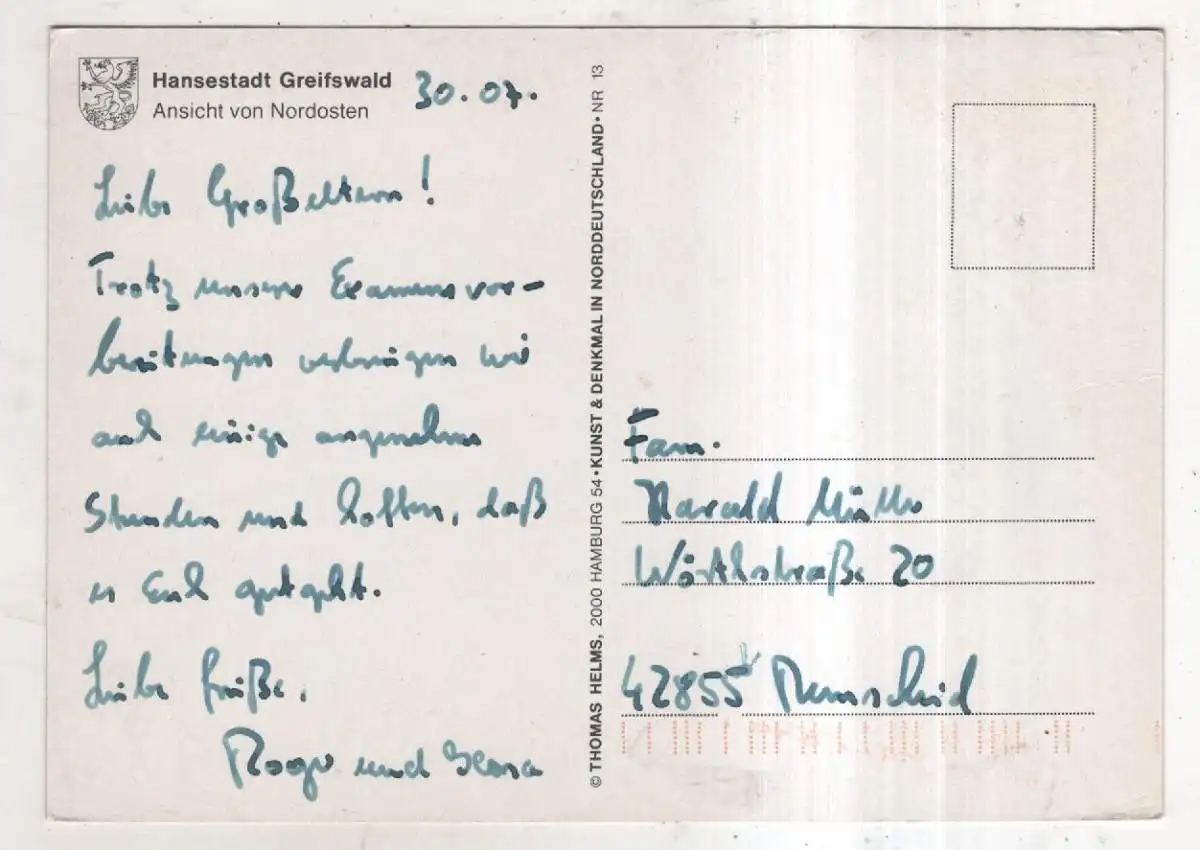 Hansestadt Greifswald
Ansicht von Nordosten
30.07.
Liebe Großeltern!
Trotz unserer Examensvor-
bereitungen verbringen wir
auch einige angenehme
Stunden und hoffen, daß
es Euch gutgeht.
Liebe Grüße,
Roger und
© THOMAS HELMS, 2000 HAMBURG 54 • KUNST & DENKMAL IN NORDDEUTSCHLAND • NR 13
Fam.
Harald Müller
Wörthstraße 20
42855 Remscheid